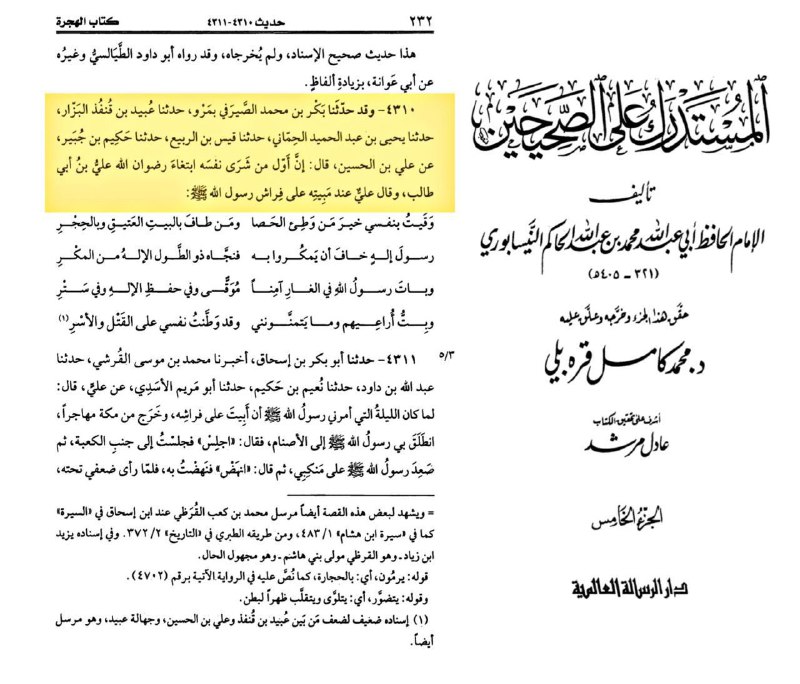 المستدرك على الصحيحين
تأليف
الإمام الحافظ أبي عبد الله محمد بن عبد الله الحاكم النيسابوري
(٣٢١ - ٤٠٥هـ)
حقق هذا الجزء وخرجه وعلق عليه
د. محمد كامل قره بلي
أشرف على تحقيق الكتاب
عادل مرشد
الجزء الخامس
دار الرسالة العالمية
٢٣٢
حديث ٤٣١٠-٤٣١١
كتاب الهجرة
هذا حديث صحيح الإسناد، ولم يُخرجاه، وقد رواه أبو داود الطَّيَالسيُّ وغيرُه
عن أبي عَوانة، بزيادةِ ألفاظٍ.
٤٣١٠- وقد حدَّثَنا بَكْر بن محمد الصَّيرَفي بمَرْو، حدثنا عُبيد بن قُنفُذ البَزّار،
حدثنا يحيى بن عبد الحميد الحِمّاني، حدثنا قيس بن الربيع، حدثنا حَكيم بن جُبير،
عن علي بن الحسين، قال: إنَّ أوّل من شَرَى نفسَه ابتغاءَ رضوان الله عليُّ بنُ أبي
طالب، وقال عليٌّ عند مَبِيتِه على فِراش رسول الله ﷺ:
وَقَيتُ بنفسي خيرَ مَن وَطِئَ الحَصا ومَن طافَ بالبيتِ العَتيقِ وبالحِجْرِ
رسولَ إلهٍ خافَ أن يَمكُروا به فنجّاه ذو الطَّولِ الإلهُ من المكْرِ
وباتَ رسولُ اللهِ في الغارِ آمناً مُوَقًّى وفي حفظِ الإلهِ وفي سَتْرِ
وبِتُّ أُراعِيهم وما يَتمنَّونَني وقد وَطَّنتُ نفسي على القَتْلِ والأسْرِ (١)
٥/٣
٤٣١١- حدثنا أبو بكر بن إسحاق، أخبرنا محمد بن موسى القُرشي، حدثنا
عبد الله بن داود، حدثنا نُعيم بن حَكيم، حدثنا أبو مريم الأسَدِي، عن عليٍّ، قال:
لما كان الليلةُ التي أمرني رسولُ الله ﷺ أن أَبِيتَ على فراشِه، وخَرَج من مكة مهاجراً،
انطَلَقَ بي رسولُ الله ﷺ إلى الأصنام، فقال: «اجلِسْ» فجلستُ إلى جنبِ الكعبة، ثم
صَعِدَ رسولُ الله ﷺ على مَنكِبي، ثم قال: «انهَضْ» فنَهضْتُ به، فلمّا رأى ضعفي تحته،
= ويشهد لبعض هذه القصة أيضاً مرسل محمد بن كعب القُرَظي عند ابن إسحاق في «السيرة»
كما في «سيرة ابن هشام» ٤٨٣/١، ومن طريقه الطبري في «التاريخ» ٣٧٢/٢. وفي إسناده يزيد
ابن زياد- وهو القرظي مولى بني هاشم- وهو مجهول الحال.
قوله: يرمُون، أي: بالحجارة، كما نُصَّ عليه في الرواية الآتية برقم (٤٧٠٢).
وقوله: يتضوَّر، أي: يتلوَّى ويتقلَّب ظهراً لبطن.
(١) إسناده ضعيف لضعف مَن بَين عُبيد بن قُنفذ وعلي بن الحسين، وجهالة عبيد، وهو مرسل
أيضاً.